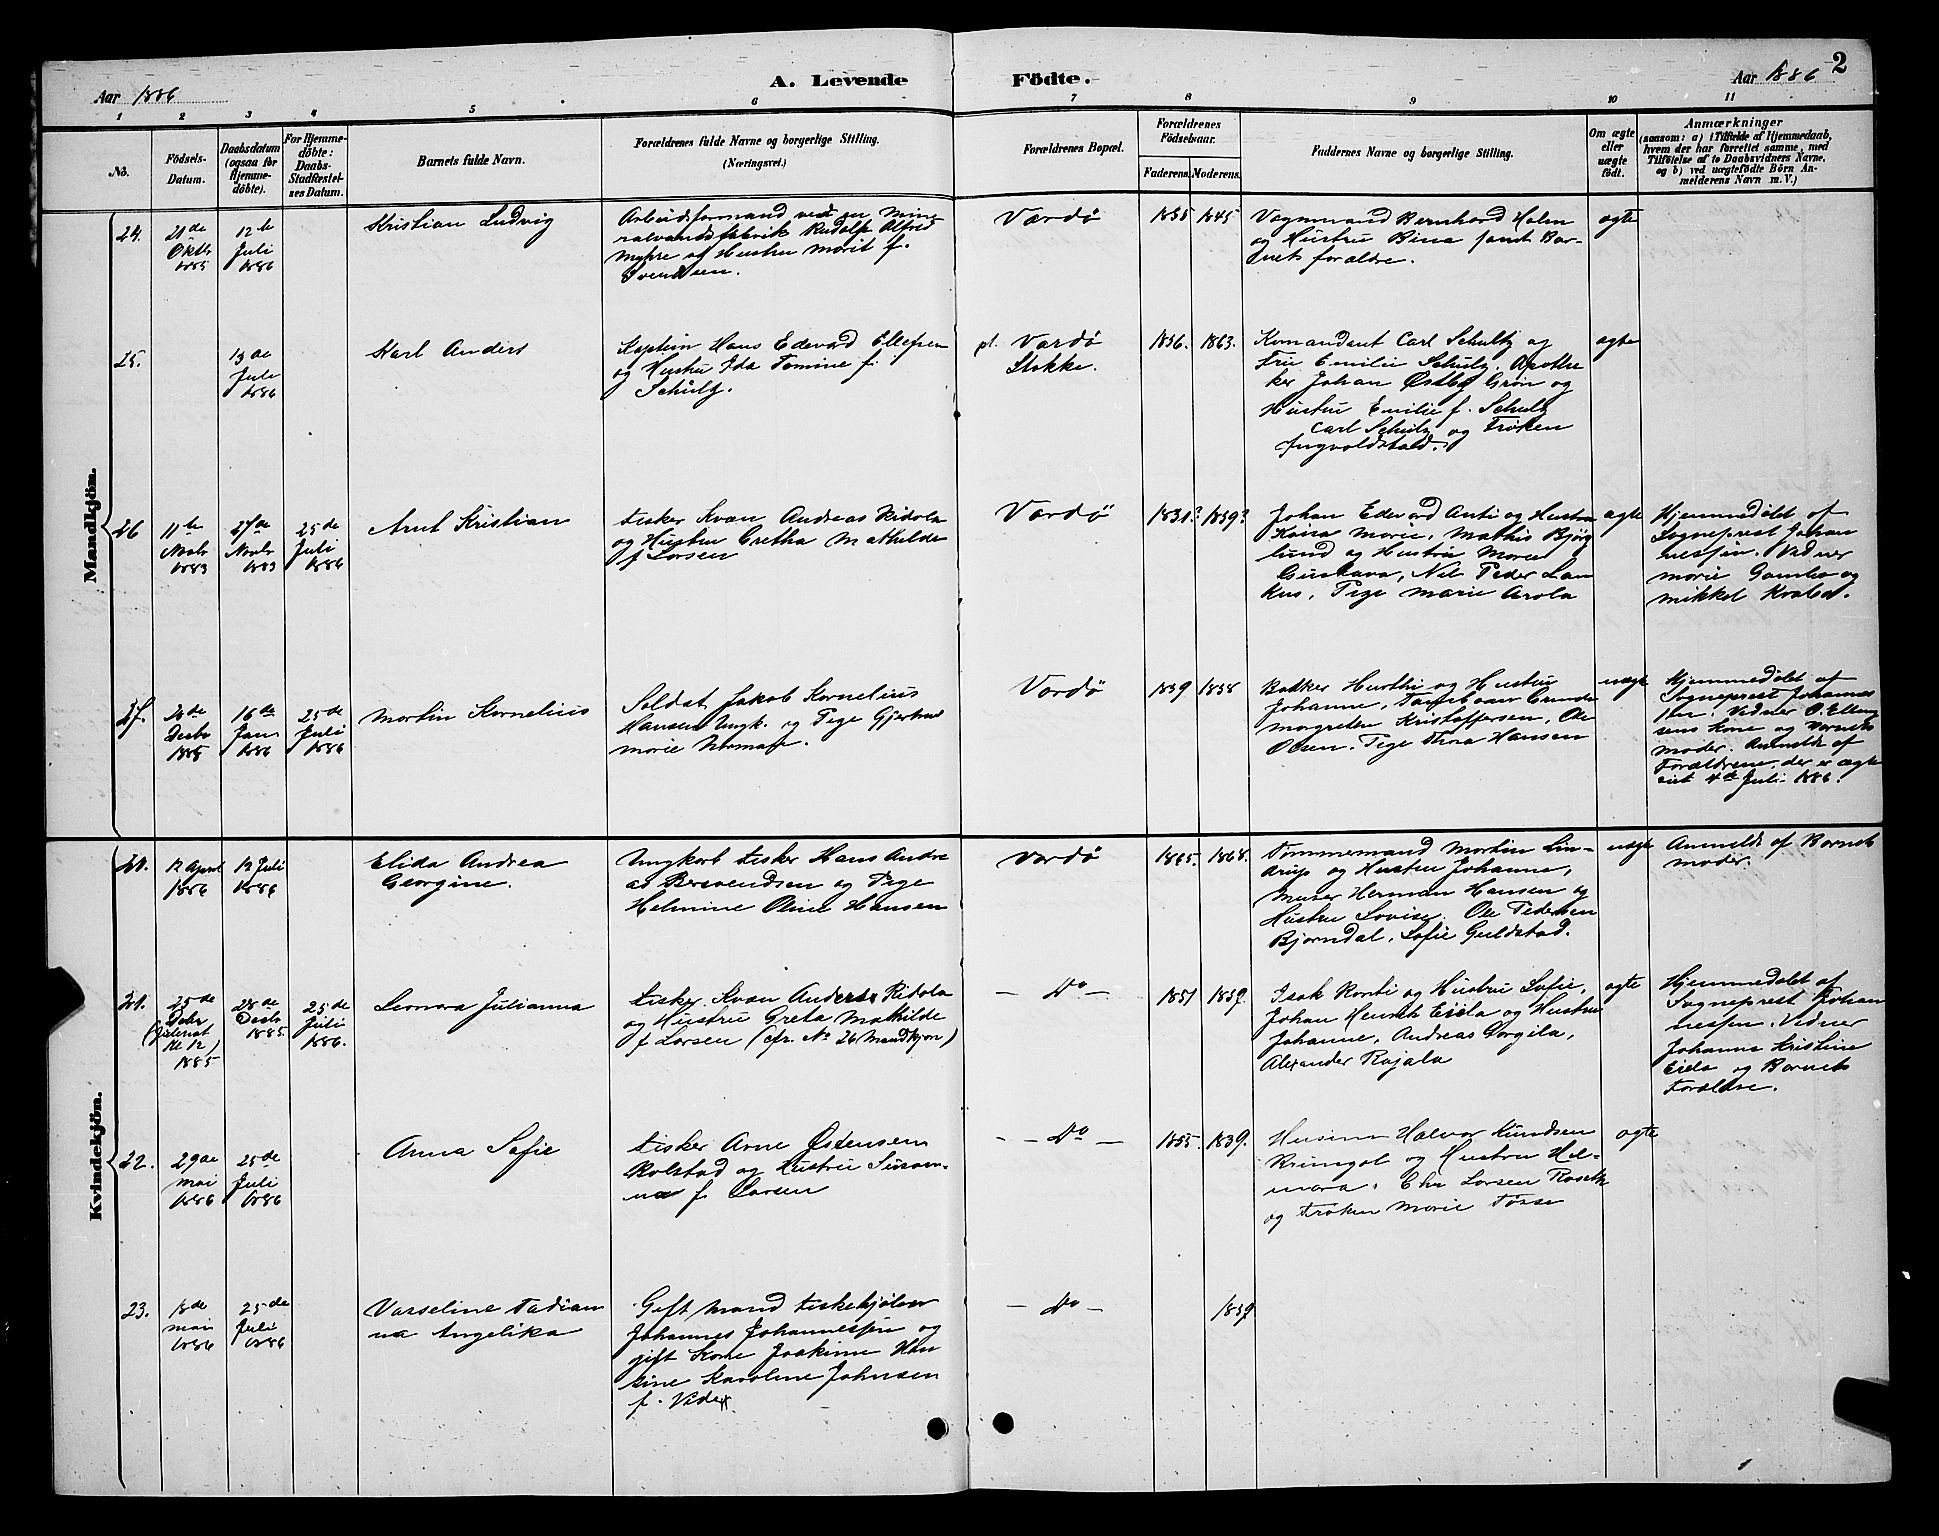 2
A. Levende Födte.
Aar 1886
Aar 1886
1 2 3 4 5 6 7 8 9 10 11
No.
Födsels-
Datum.
Daabsdatum
(ogsaa for
Hjemme-
döbte).
For Hjemme-
döbte:
Daabs-
Stadfæstel-
ses Datum.
Barnets fulde Navn.
Forældrenes fulde Navne og borgerlige Stilling.
(Næringsvei.)
Forældrenes Bopæl.
Forældrenes
Födselsaar.
Faderens. Moderens.
Faddernes Navne og borgerlige Stilling.
Om ægte
eller
uægte
födt.
Anmærkninger
(saasom: a) i Tilfælde af Hjemmedaab,
hvem der har forrettet samme, med
Tilföielse af to Daabsvidners Navne,
og b) ved uægtefödte Börn An-
melderens Navn m. V.)
Mandkjön.
24.
21de
Oktbr
1885
12te
Juli
1886
Kristian Ludvig
Arbeidsformand ved en Mine
ralvandsfabrik Rudolf Alfred
Myhre og Hustru Marit f.
Svendsen.
Vardö
1855 1845
Vognmand Bernhard Holm
og Hustru Bina samt Bar-
nets forældre.
ægte
25.
13de
Juli
1886
Karl Anders
Kaptein Hans Edevard Ellefsen
og Hustru Ida Tomine f.
Schultz.
pt. Vardö
Stokke.
1856. 1863.
Komandant Carl Schultz og
Fru Emilie Schultz, Apothe
ker Johan Østby Grön og
Hustru Emilie f. Schultz
Carl Schultz og Frøken
Ingvoldstad.
ægte
26
11te
Novbr
1883
27de
Novbr
1883
25de
Juli
1886
Arnt Kristian
Fisker Kvæn Andreas Ridola
og Hustru Gretha Mathilde
f Larsen
Vardö
1851? 1859?
Johan Edevard Anti og Hustru
Kaisa Marie, Mathis Bjøg
lund og Hustru Marie
Gustava, Nils Peder Lan
kus, Pige Marie Arola
ægte
Hjemmedøbt af
Sogneprest Johan
nessen. Vidner
Marie Gamla og
Mikkel Kvaba.
27.
1885
16de
Jan
1886
25de
Juli
1886
Martin Kornelius
Soldat Jakob Kornelius
Hansen Ungk. og Pige Gjertrud
Marie
Vardö
1859 1858
og Hustru
Johanne,
Magrethe Kristoffersen, Ole
Olsen. Pige Thra Hansen
uægte
Hjemmedøbt af
Sogneprest Johannes
sen. Vidner O. Elling
sens Kone og Barnets
Moder. Anmeldt af
Forældrene, der er ægte
viet 4de Juli 1886.
Kvindekjön.
20.
12 April
1886
12 Juli
1886
Elida Andrea
Georgine.
Ungkarl Fisker Hans Andre
as Berevendsen og Pige
Helmine Oline Hansen
Vardö
1865. 1868.
Tømmermand Martin Lin-
drup og Hustru Johanne,
Murer Herman Hansen og
Hustru Lovise. Ole Pedersen
Bjørndal, Sofie Guldstad.
uægte
Anmeldt af Barnets
Moder.
21.
25de
Debr
(Julenat
Kl 12)
1885
28de
Desbr
1885.
25de
Juli
1886.
Leonora Julianna
Fisker. Kvæn Anders Ridola
og Hustru Greta Mathilde
f Larsen (cfr. No 26 Mandkjøn)
- Do -
1851 1859.
Isak Ronti og Hustru Sofie,
Johan Henrik Eiela og Hustru
Johanne, Andreas Gorgila,
Alexander Rajala
ægte
Hjemmedøbt af
Sogneprest Johan
nessen. Vidner
Johanne Kristine
Eiela og Barnets
Forældre.
22.
29de
Mai
1886
25de
Juli
1886
Anna Sofie
Fisker Arne Østensen
Rolstad og Hustru Susan-
na f. Larsen
- Do -
1855 1839.
Halvor Knudsen
og Hustru Hel-
mara. Chr Larsen
og Frøken Marie Fosse
ægte
23.
18de
Mai
1886
25de
Juli
1886
Vasseline Tadian
na Angelika
Gift Mand Fiskekjøber
Johannes Johannessen og
gift Kone Joakime Han
sine Karoline Johnsen
- Do -
1859